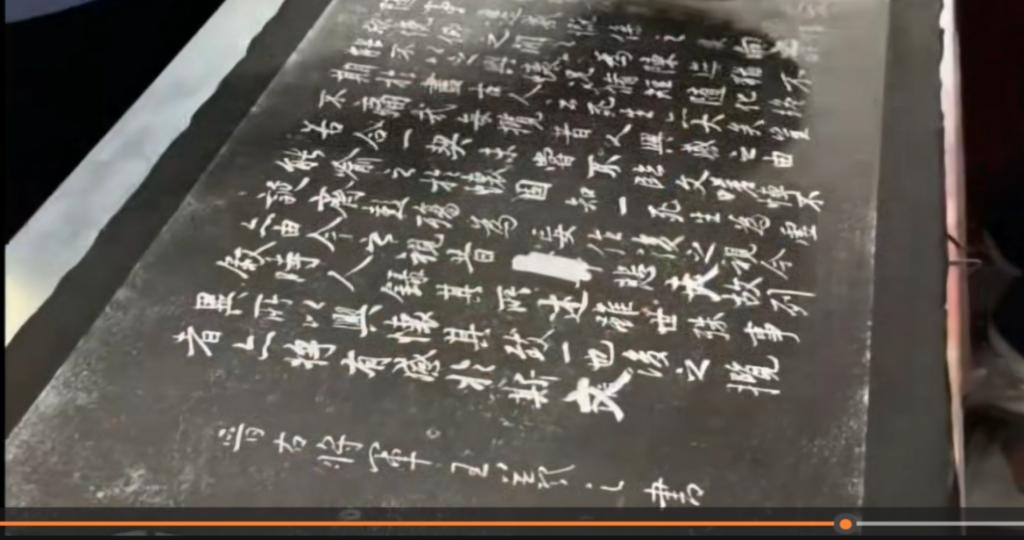 期於盡古人云死生亦大矣豈不
痛哉每攬昔人興感之由
若合一契未嘗不臨文嗟悼不
能喻之於懷固知一死生為虛
誕齊彭殤為妄作後之視今
亦由今之視昔悲夫故列
敘時人錄其所述雖世殊事
異所以興懷其致一也後之攬
者亦將有感於斯文
晉右將軍王羲之書